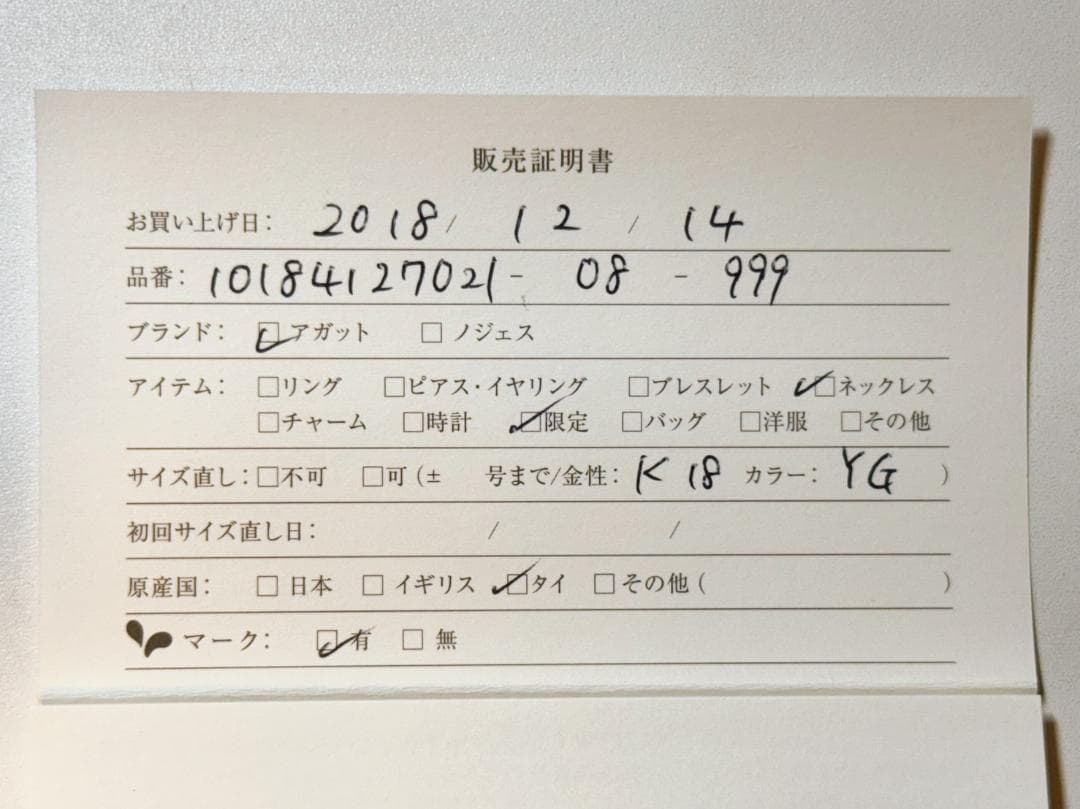 販売証明書
お買い上げ日: 2018 / 12 / 14
品番: 10184127021 - 08 - 999
ブランド: ☑アガット □ノジェス
アイテム: □リング □ピアス・イヤリング □ブレスレット ☑ネックレス
□チャーム □時計 ☑限定 □バッグ □洋服 □その他
サイズ直し: □不可 □可 (± 号まで/金性: K18 カラー: YG )
初回サイズ直し日: / /
原産国: □日本 □イギリス ☑タイ □その他 ( )
マーク: ☑有 □無